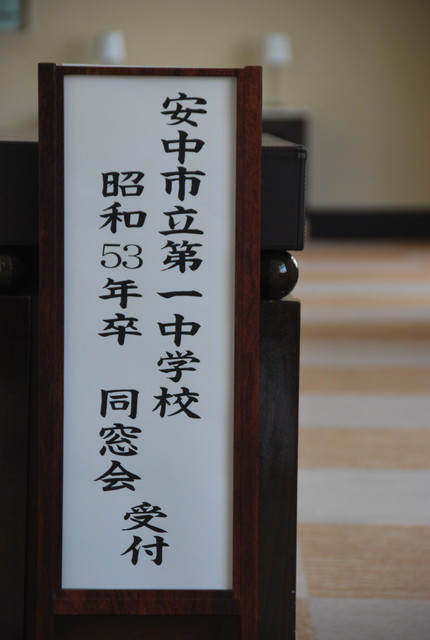 安中市立第一中学校
昭和53年卒 同窓会
受付